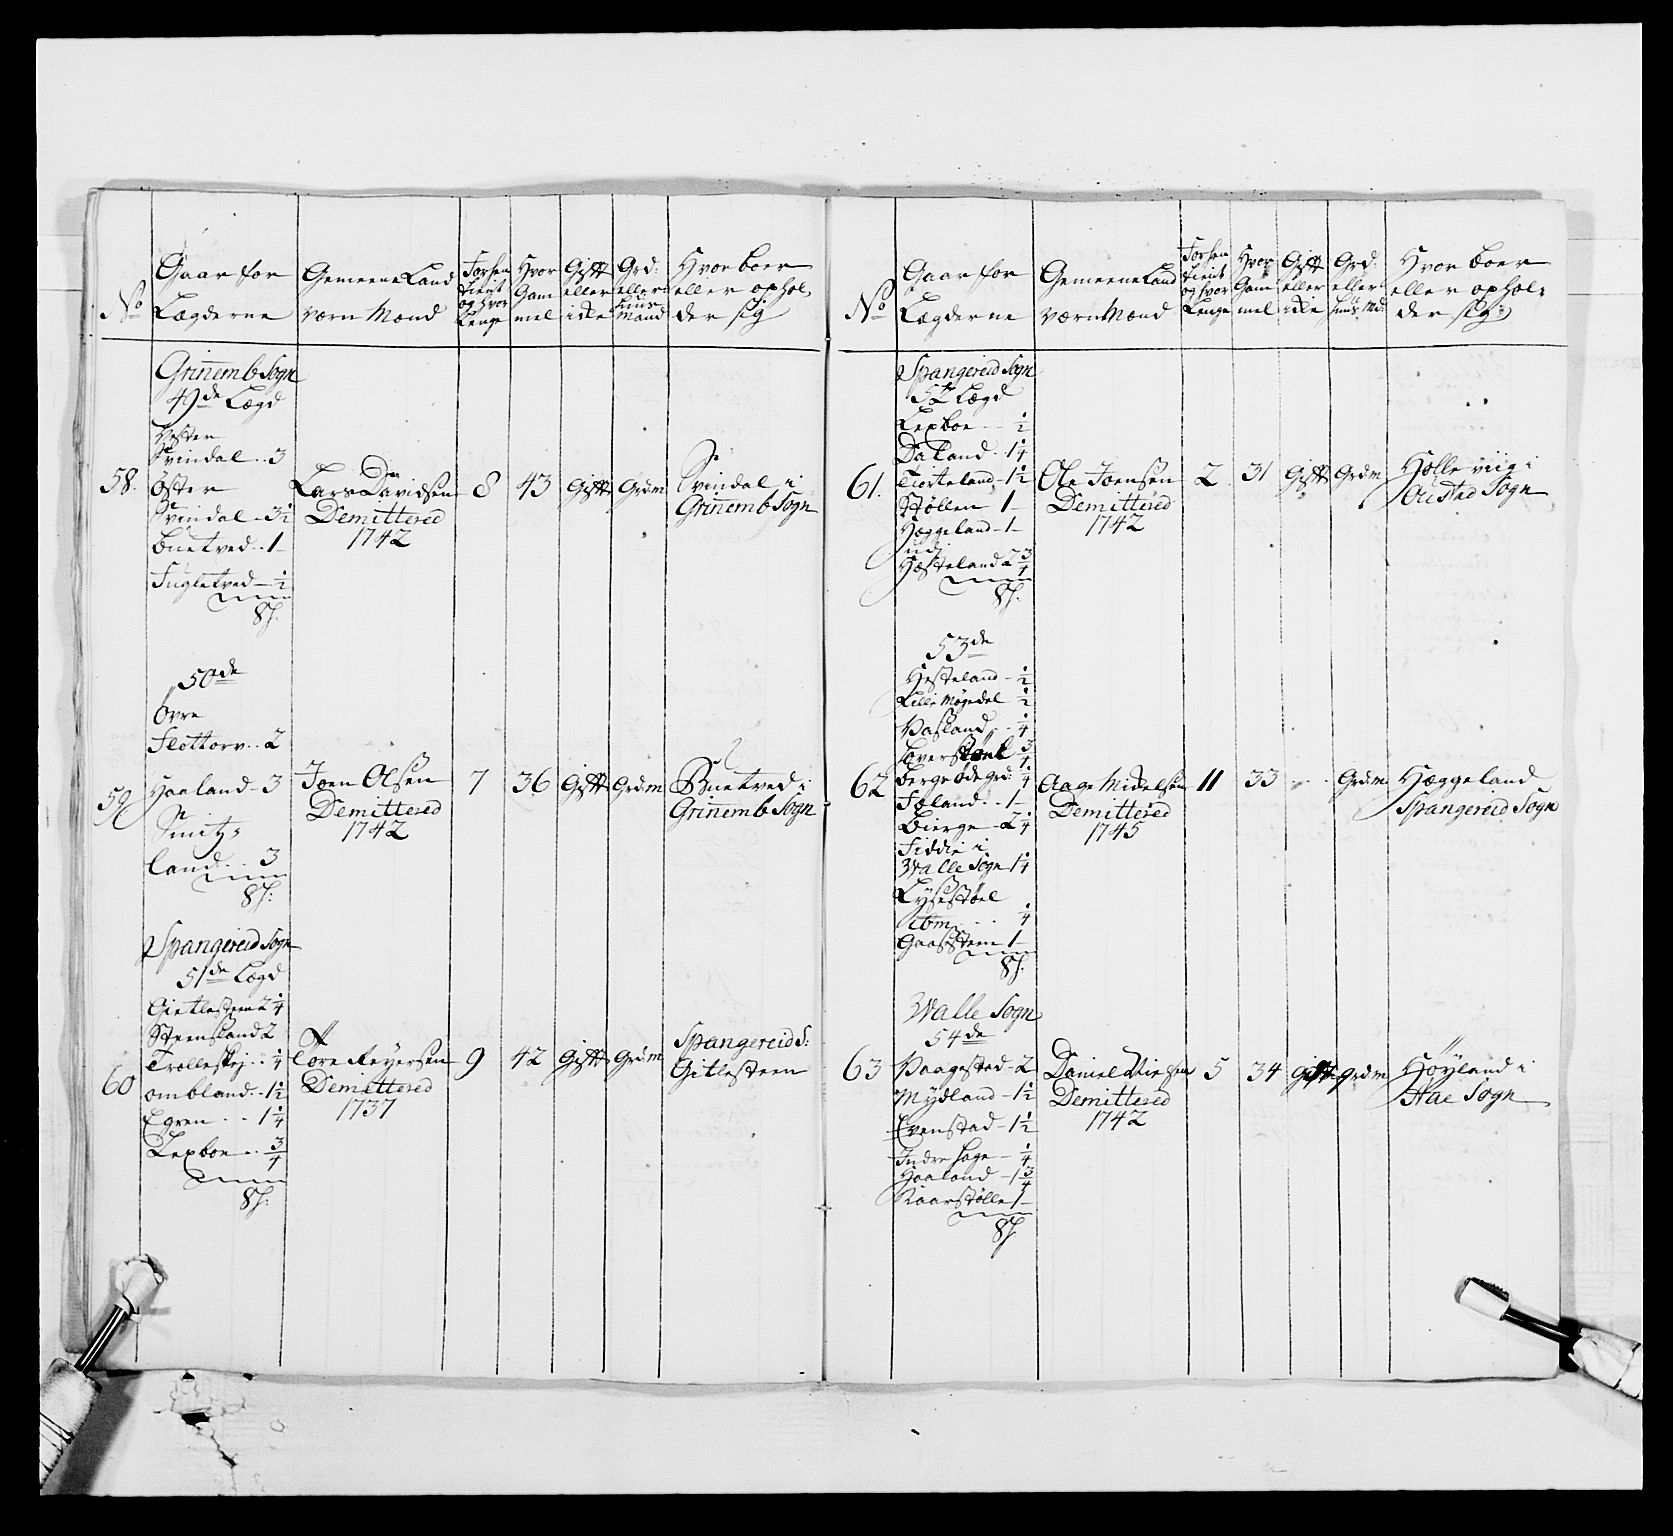 No
Gaar for
Lægderne
Gemeene Land
værn Mænd
Forhen
tient
og hvor
Lenge
Hvor
Gam
mel
Gift
eller
icke
Grd:
eller
Huus
Mand
Hvor boer
eller ophol,
der sig
Grinemb Sogn
49de Lægd
Vester
Svindal .. 3
58.
Öster
Svindal .. 3½
Buetved .. 1
Fugletved - ½
8 h:
Lars Davidsen
Demittered
1742
8
43
Gift
Grdm
Svindal i
Grinemb Sogn
50de
Övre
Flottorv .. 2
59
Haaland - 3
Smitz=
land .. 3
8 h:
Joen Olsen
Demittered
1742
7
36
Gift
Grdm
Buetved i
Grinemb Sogn
Spangereid Sogn
51de Lægd
Gietlesteen 2¼
Steensland 2
60
Trolleskej .. ¼
ombland .. 1½
Egren .. 1¼
Lexboe .. ¾
8 h:
Tore Reyersen
Demittered
1737
9
42
Gift
Grdm
Spangereid S:
Gitlesteen
No
Gaar for
Lægderne
Gemeene Land
værn Mænd
Forhen
tient
og hvor
Lenge
Hvor
Gam
mel
Gift
eller
icke
Grd:
eller
huus Md:
Hvor boer
eller ophol:
der sig:
Spangereid Sogn
52 Lægd
Lexboe .. ½
Daland . 1¼
61.
Tiorteland - 1½
Støllen 1
Hæggeland - 1
udj
Hæsteland 2¾
8 h:
Ole Joensen
Demittered
1742
2
31
Gift
Grdm
Hølle viig i
Oustad Sogn
53de
Hesteland - ½
Lille Møgedal ½
Vasland .. ¼
62
Berge øde grd: ¼
Foland .. 1
Bierge - 2¼
Fiddie i
Walle Sogn 1¼
Lysestöel
Gaassteen 1
8 h:
Aage Mickelsen
Demittered
1745
11
33
Grdm
Hæggeland
Spangereid Sogn
Walle Sogn
54de
63
Vaagestad - 2
Mydland - 1½
Evenstad - 1½
Indre hage - ¼
Haaland - 1¾
Kaarstølle 1
8 h
Daniel
Demittered
1742
5
34
Gift
Grdm
Höyland i
Hae Sogn